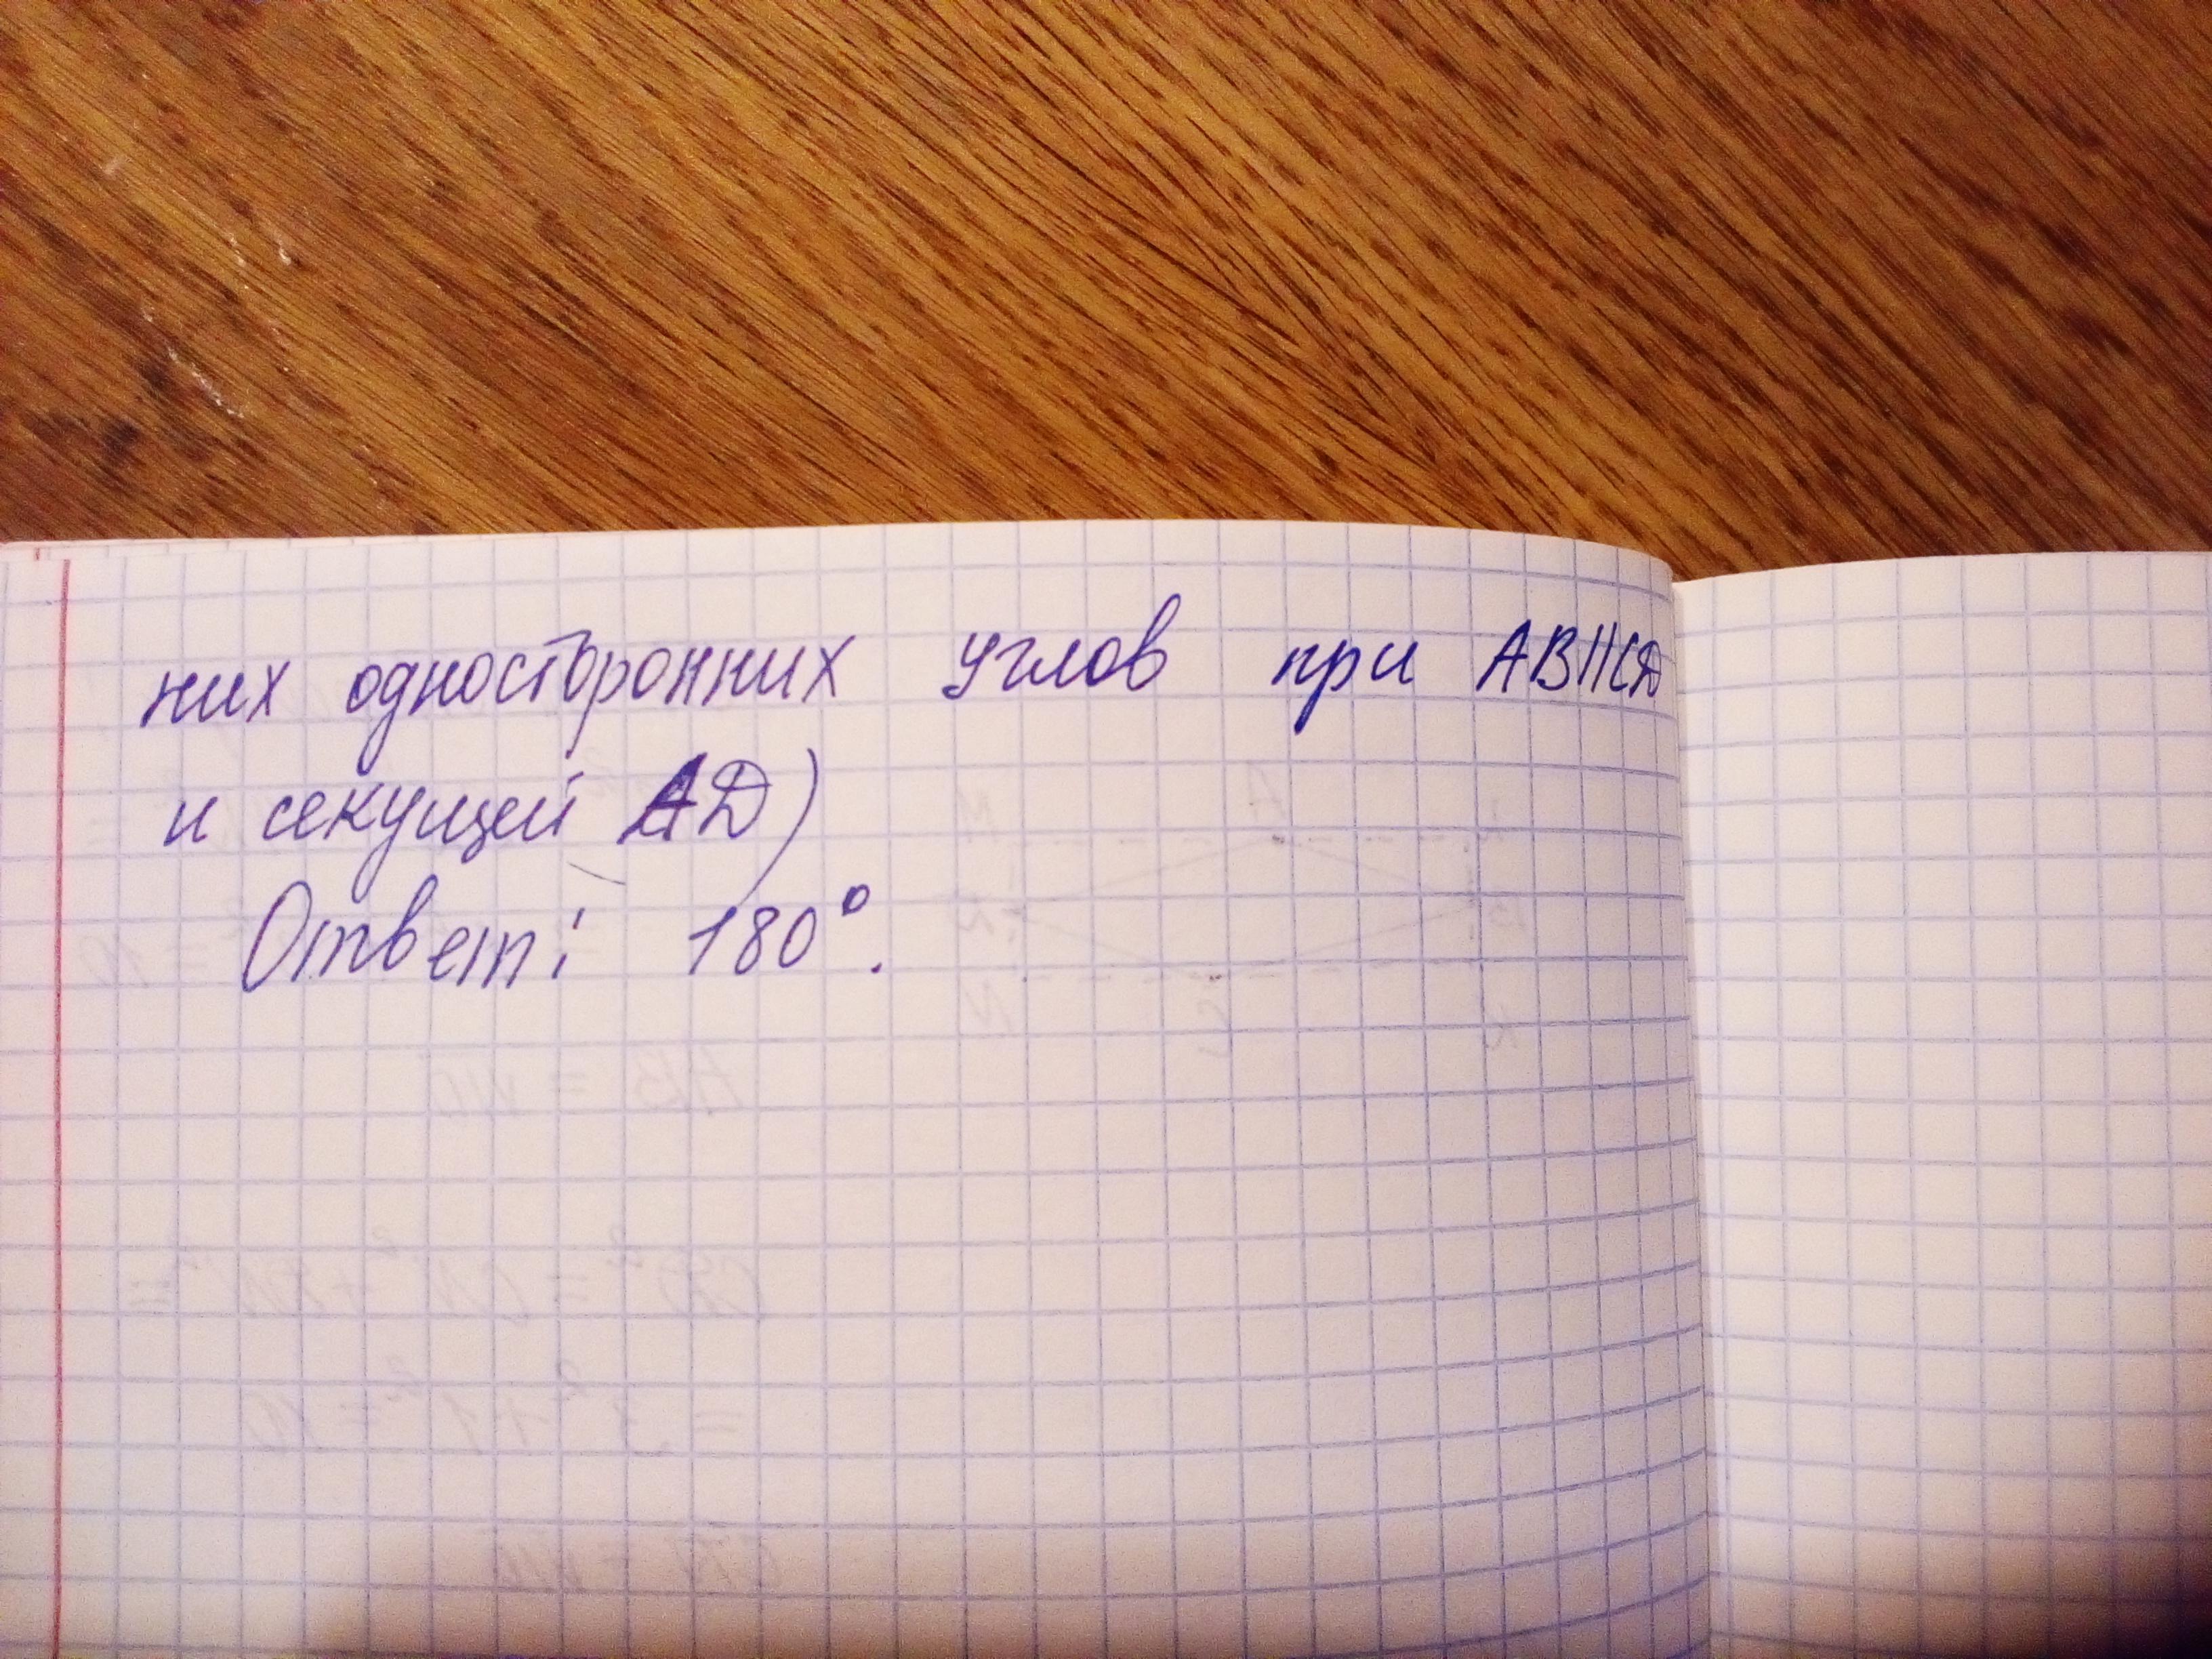 них односторонних углов при AB||CD
и секущей AD)
Ответ: 180°.